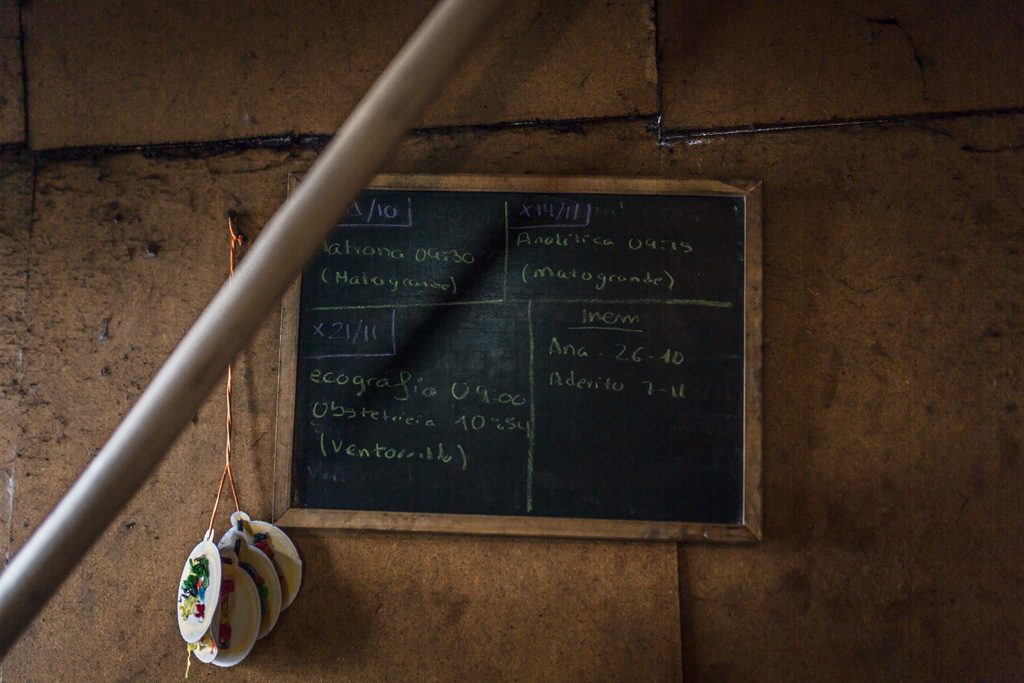 1/10
atrona 09:30
(Matogrande)
x14/11
Analitica 09:15
(matogrande)
x21/11
ecografia 09:00
Obstetricia 10:54
(Ventorrillo)
Inem
Ana - 26-10
Aderito 7-11